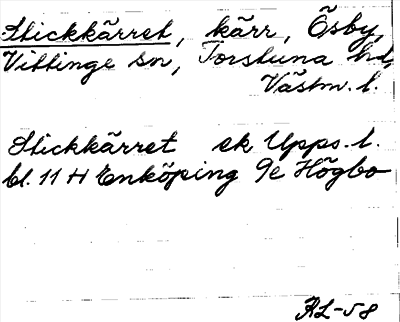 Stickkärret, kärr, Ösby,
Vittinge sn, Torstuna hd,
Västm. l.
Stickkärret ek Upps. l.
bl. 11 H Enköping 9e Högbo
RL-58